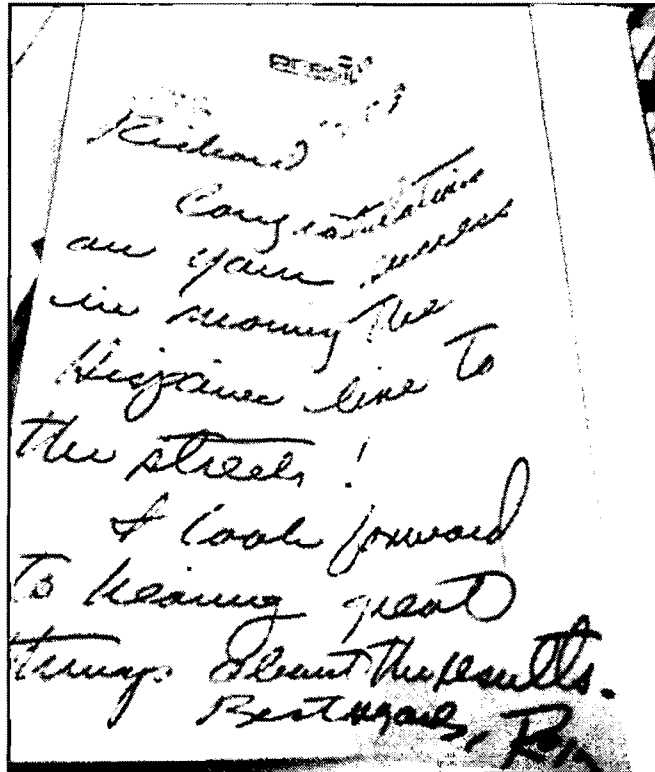 Richard
Congratulations
on your success
in moving the
Hispanic line to
the streets!
I look forward
To hearing great
things about the results.
Best regards, Ron